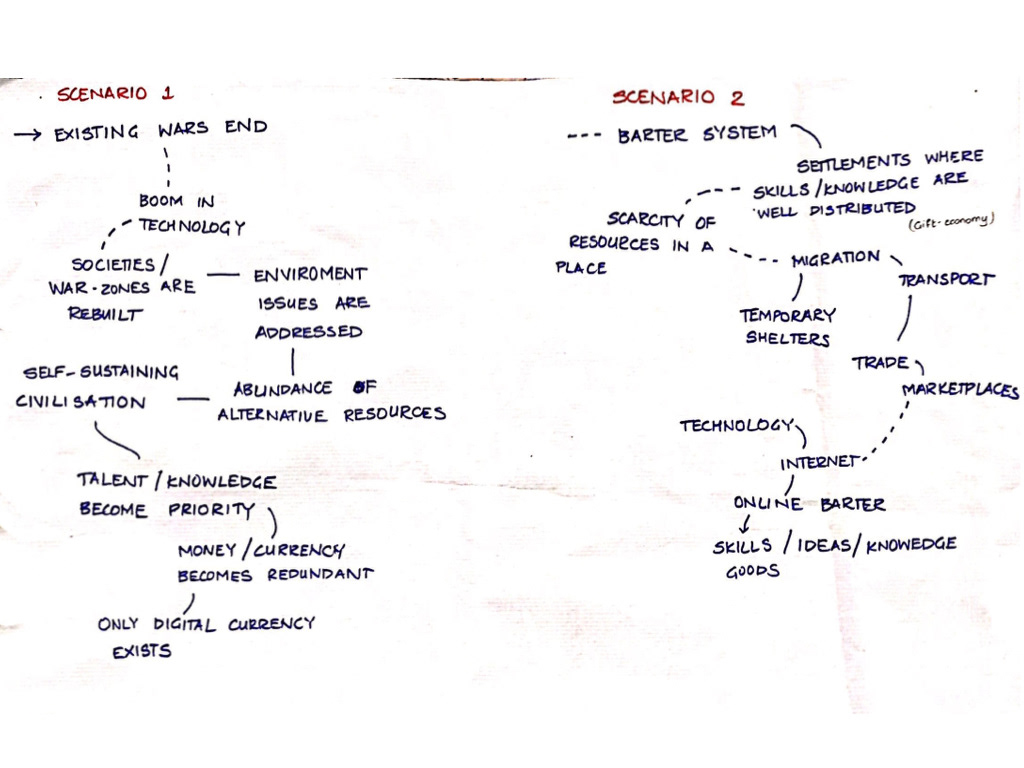 SCENARIO 1
→ EXISTING WARS END
BOOM IN
TECHNOLOGY
SOCIETIES/
WAR-ZONES ARE
REBUILT
ENVIROMENT
ISSUES ARE
ADDRESSED
ABUNDANCE OF
ALTERNATIVE RESOURCES
SELF-SUSTAINING
CIVILISATION
TALENT/KNOWLEDGE
BECOME PRIORITY
MONEY/CURRENCY
BECOMES REDUNDANT
ONLY DIGITAL CURRENCY
EXISTS
SCENARIO 2
BARTER SYSTEM
SETTLEMENTS WHERE
SKILLS/KNOWLEDGE ARE
WELL DISTRIBUTED
(Gift-economy)
SCARCITY OF
RESOURCES IN A
PLACE
MIGRATION
TEMPORARY
SHELTERS
TRANSPORT
TRADE
MARKETPLACES
TECHNOLOGY
INTERNET
ONLINE BARTER
SKILLS / IDEAS/ KNOWEDGE
GOODS